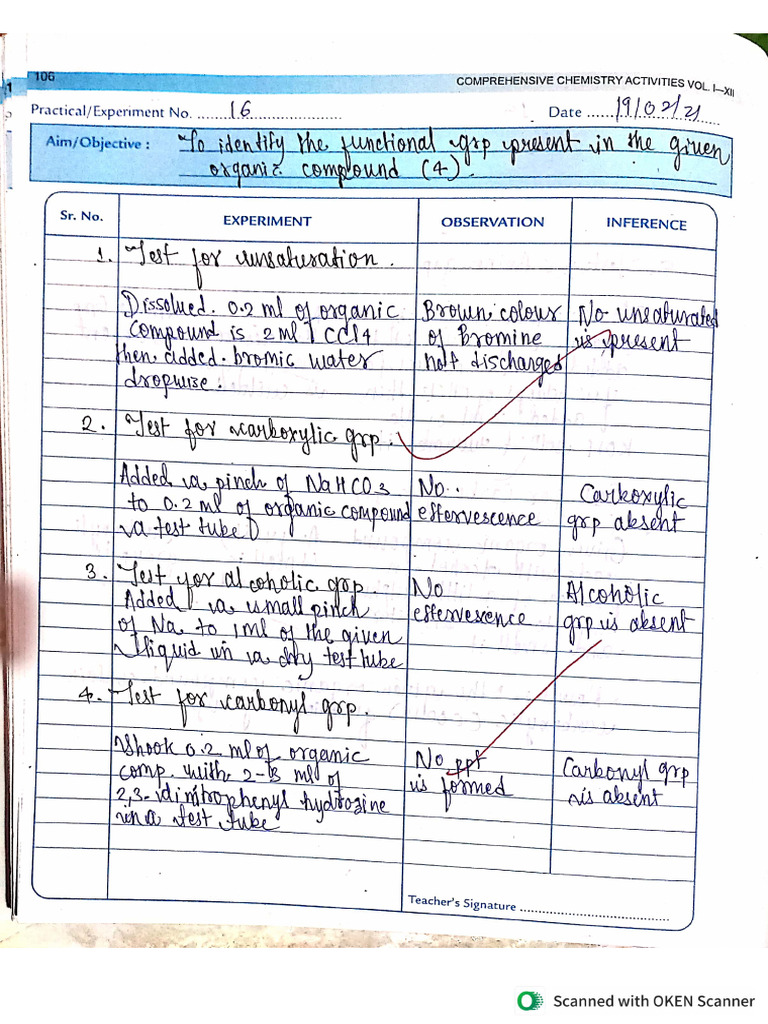 106
COMPREHENSIVE CHEMISTRY ACTIVITIES VOL. I—XII
Practical/Experiment No. ....... 16 ....................
Date ...... 19/02/21 .....
Aim/Objective : To identify the functional grp present in the given
organic compound (4).
Sr. No. EXPERIMENT OBSERVATION INFERENCE
1. Test for unsaturation.
Dissolved 0.2 ml of organic Brown colour No unsaturated
compound is 2 ml CCl4 of Bromine is present
then added bromic water not discharged
dropwise.
2. Test for carboxylic grp.
Added a pinch of NaHCO3 No Carboxylic
to 0.2 ml of organic compound effervescence grp absent
a test tube
3. Test for alcoholic grp. No Alcoholic
Added a small pinch effervescence grp is absent
of Na to 1ml of the given
liquid in a dry test tube
4. Test for carbonyl grp.
Shook 0.2 ml of organic No ppt Carbonyl grp
comp. with 2-3 ml of is formed is absent
2,3-dinitrophenyl hydrozine
in a test tube
Teacher's Signature ......................................
Scanned with OKEN Scanner